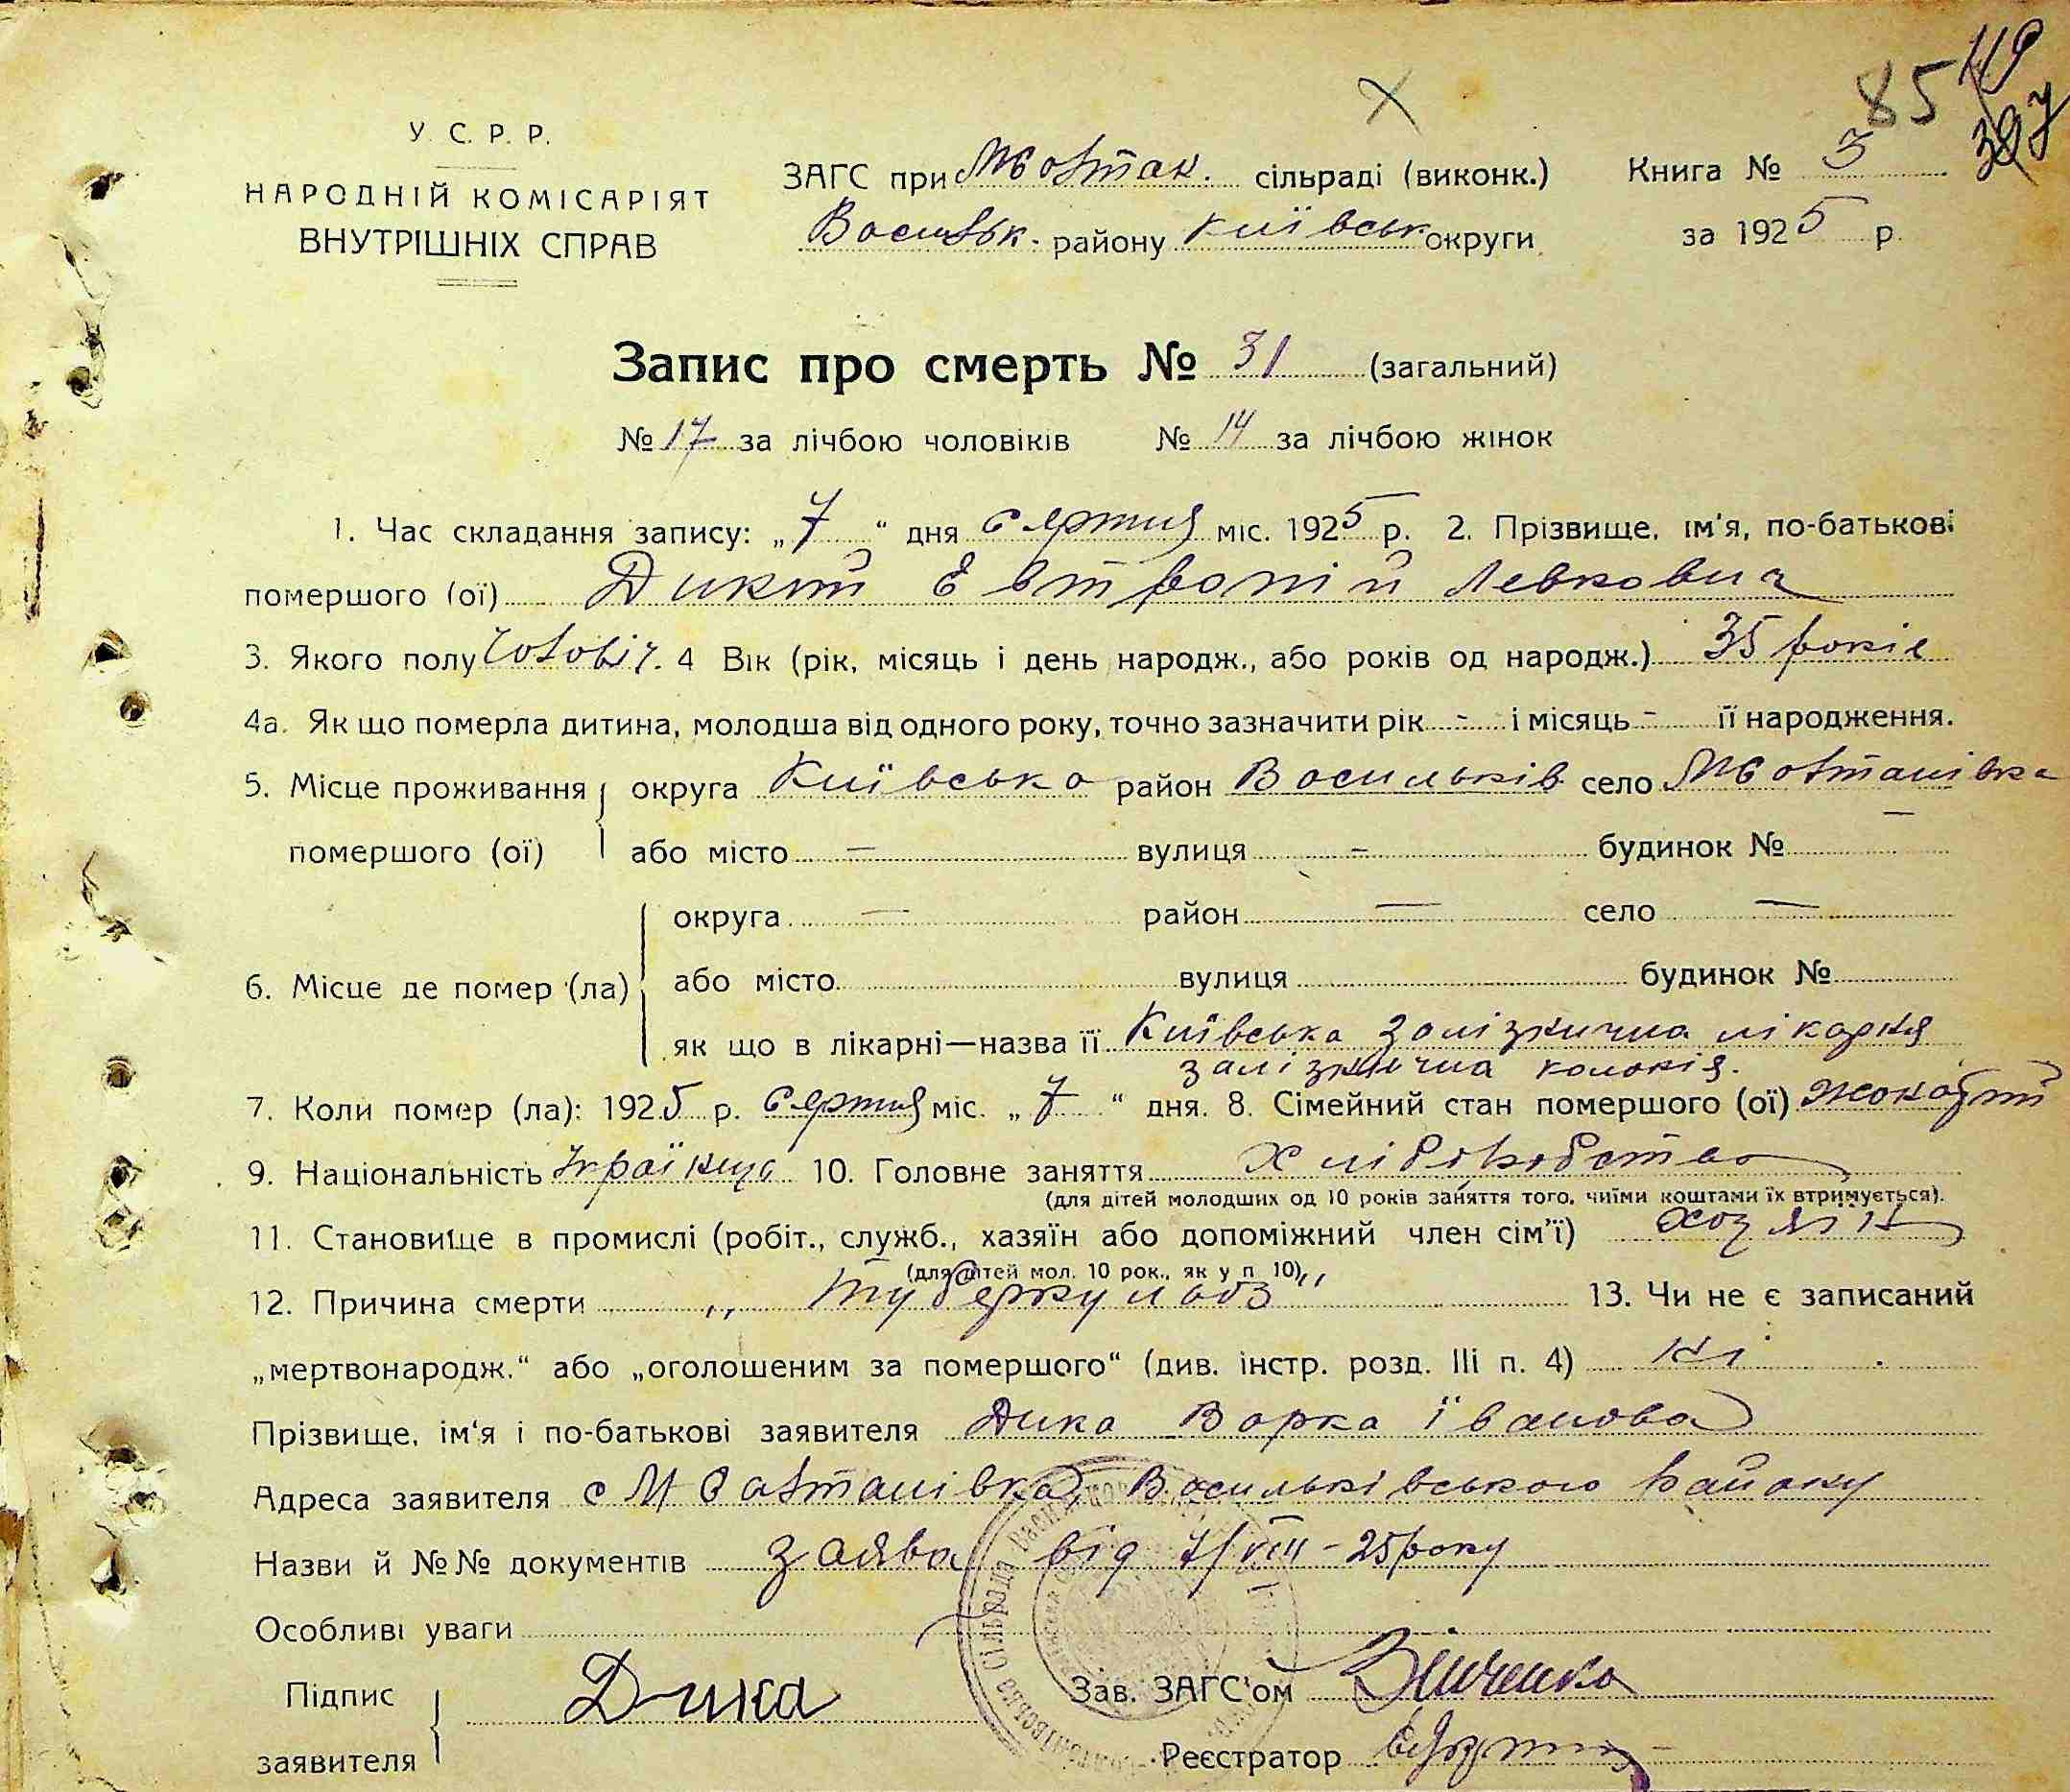 85 119
327
У. С. Р. Р.
НАРОДНІЙ КОМІСАРІЯТ
ВНУТРІШНІХ СПРАВ
ЗАГС при Мотак. сільраді (виконк.) Книга № 3
Васильк. району Київськ округи за 1925 р.
Запис про смерть № 31 (загальний)
№ 17 за лічбою чоловіків № 14 за лічбою жінок
1. Час складання запису: „7“ дня серпня міс. 1925 р. 2. Прізвище, ім'я, по-батькові
помершого (ої) Дикий Евтропій Левкович
3. Якого полу чоловіч. 4 Вік (рік, місяць і день народж., або років од народж.) 35 років
4а. Як що померла дитина, молодша від одного року, точно зазначити рік - і місяць - її народження.
5. Місце проживання округа Київська район Васильків село
помершого (ої) або місто — вулиця - будинок № —
округа — район — село —
6. Місце де помер (ла) або місто вулиця будинок №
як що в лікарні—назва її Київська залізнична лікарня
залізнична колонія.
7. Коли помер (ла): 1925 р. серпня міс. „7“ дня. 8. Сімейний стан помершого (ої) жонатий
9. Національність Українця 10. Головне заняття хліборобство
(для дітей молодших од 10 років заняття того, чиїми коштами їх втримується).
11. Становище в промислі (робіт., служб., хазяїн або допоміжний член сім'ї) хозяїн
(для дітей мол. 10 рок., як у п 10)
12. Причина смерти „туберкульоз“ 13. Чи не є записаний
„мертвонародж.“ або „оголошеним за помершого“ (див. інстр. розд. III п. 4) ні
Прізвище, ім'я і по-батькові заявителя Дика Варка Їванова
Адреса заявителя с Васильківського району
Назви й №№ документів заява від 7/VIII - 25 року
Особливі уваги
Підпис Дика Зав. ЗАГС'ом Зінченко
заявителя Реєстратор